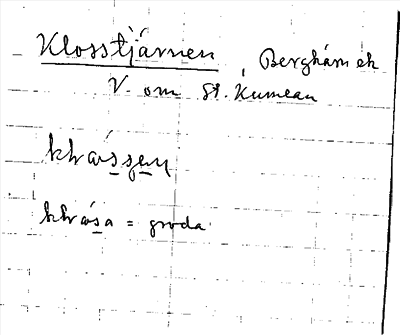 Klosstjärnen, Berghärn ek
V. om St. Kumlan
klrássen
klrása = groda